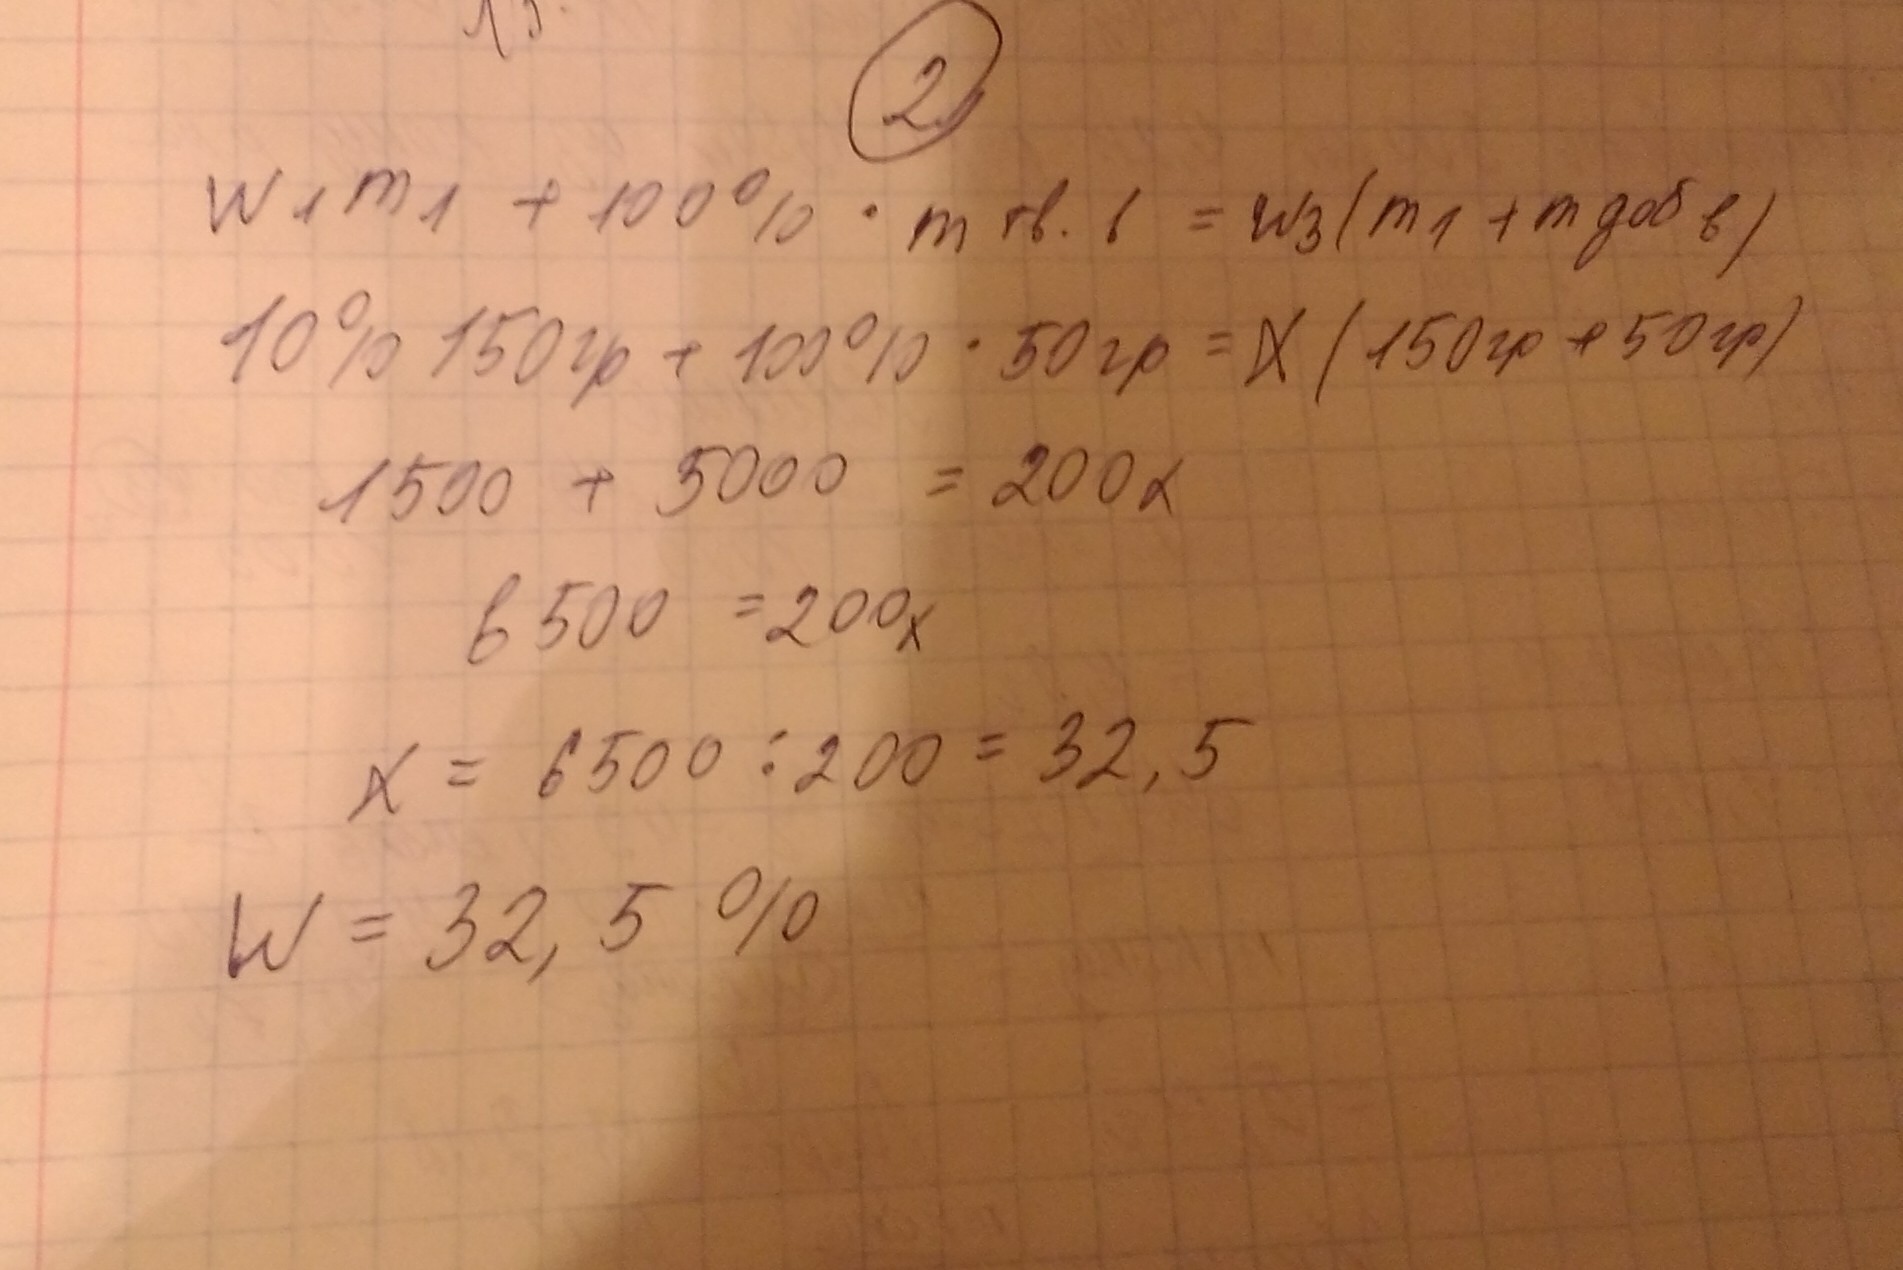 2
W1m1 + 100% · m тв. в = W3(m1 + m доб в)
10% 150гр + 100% · 50гр = X (150гр + 50гр)
1500 + 5000 = 200x
6500 = 200x
x = 6500 : 200 = 32,5
W = 32,5 %